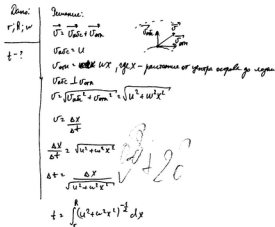 Дано:
r; R; w
t - ?
Решение:
v⃗ = v⃗абс + v⃗отн
vабс = u
vотн = wx, где x - расстояние от центра острова до лодки
vабс ⊥ vотн
v = √(vабс² + vотн²) = √(u² + w²x²)
v = Δx/Δt
Δx/Δt = √(u² + w²x²)
Δt = Δx/√(u² + w²x²)
t = ∫ᵣᴿ (u² + w²x²)^(-1/2) dx